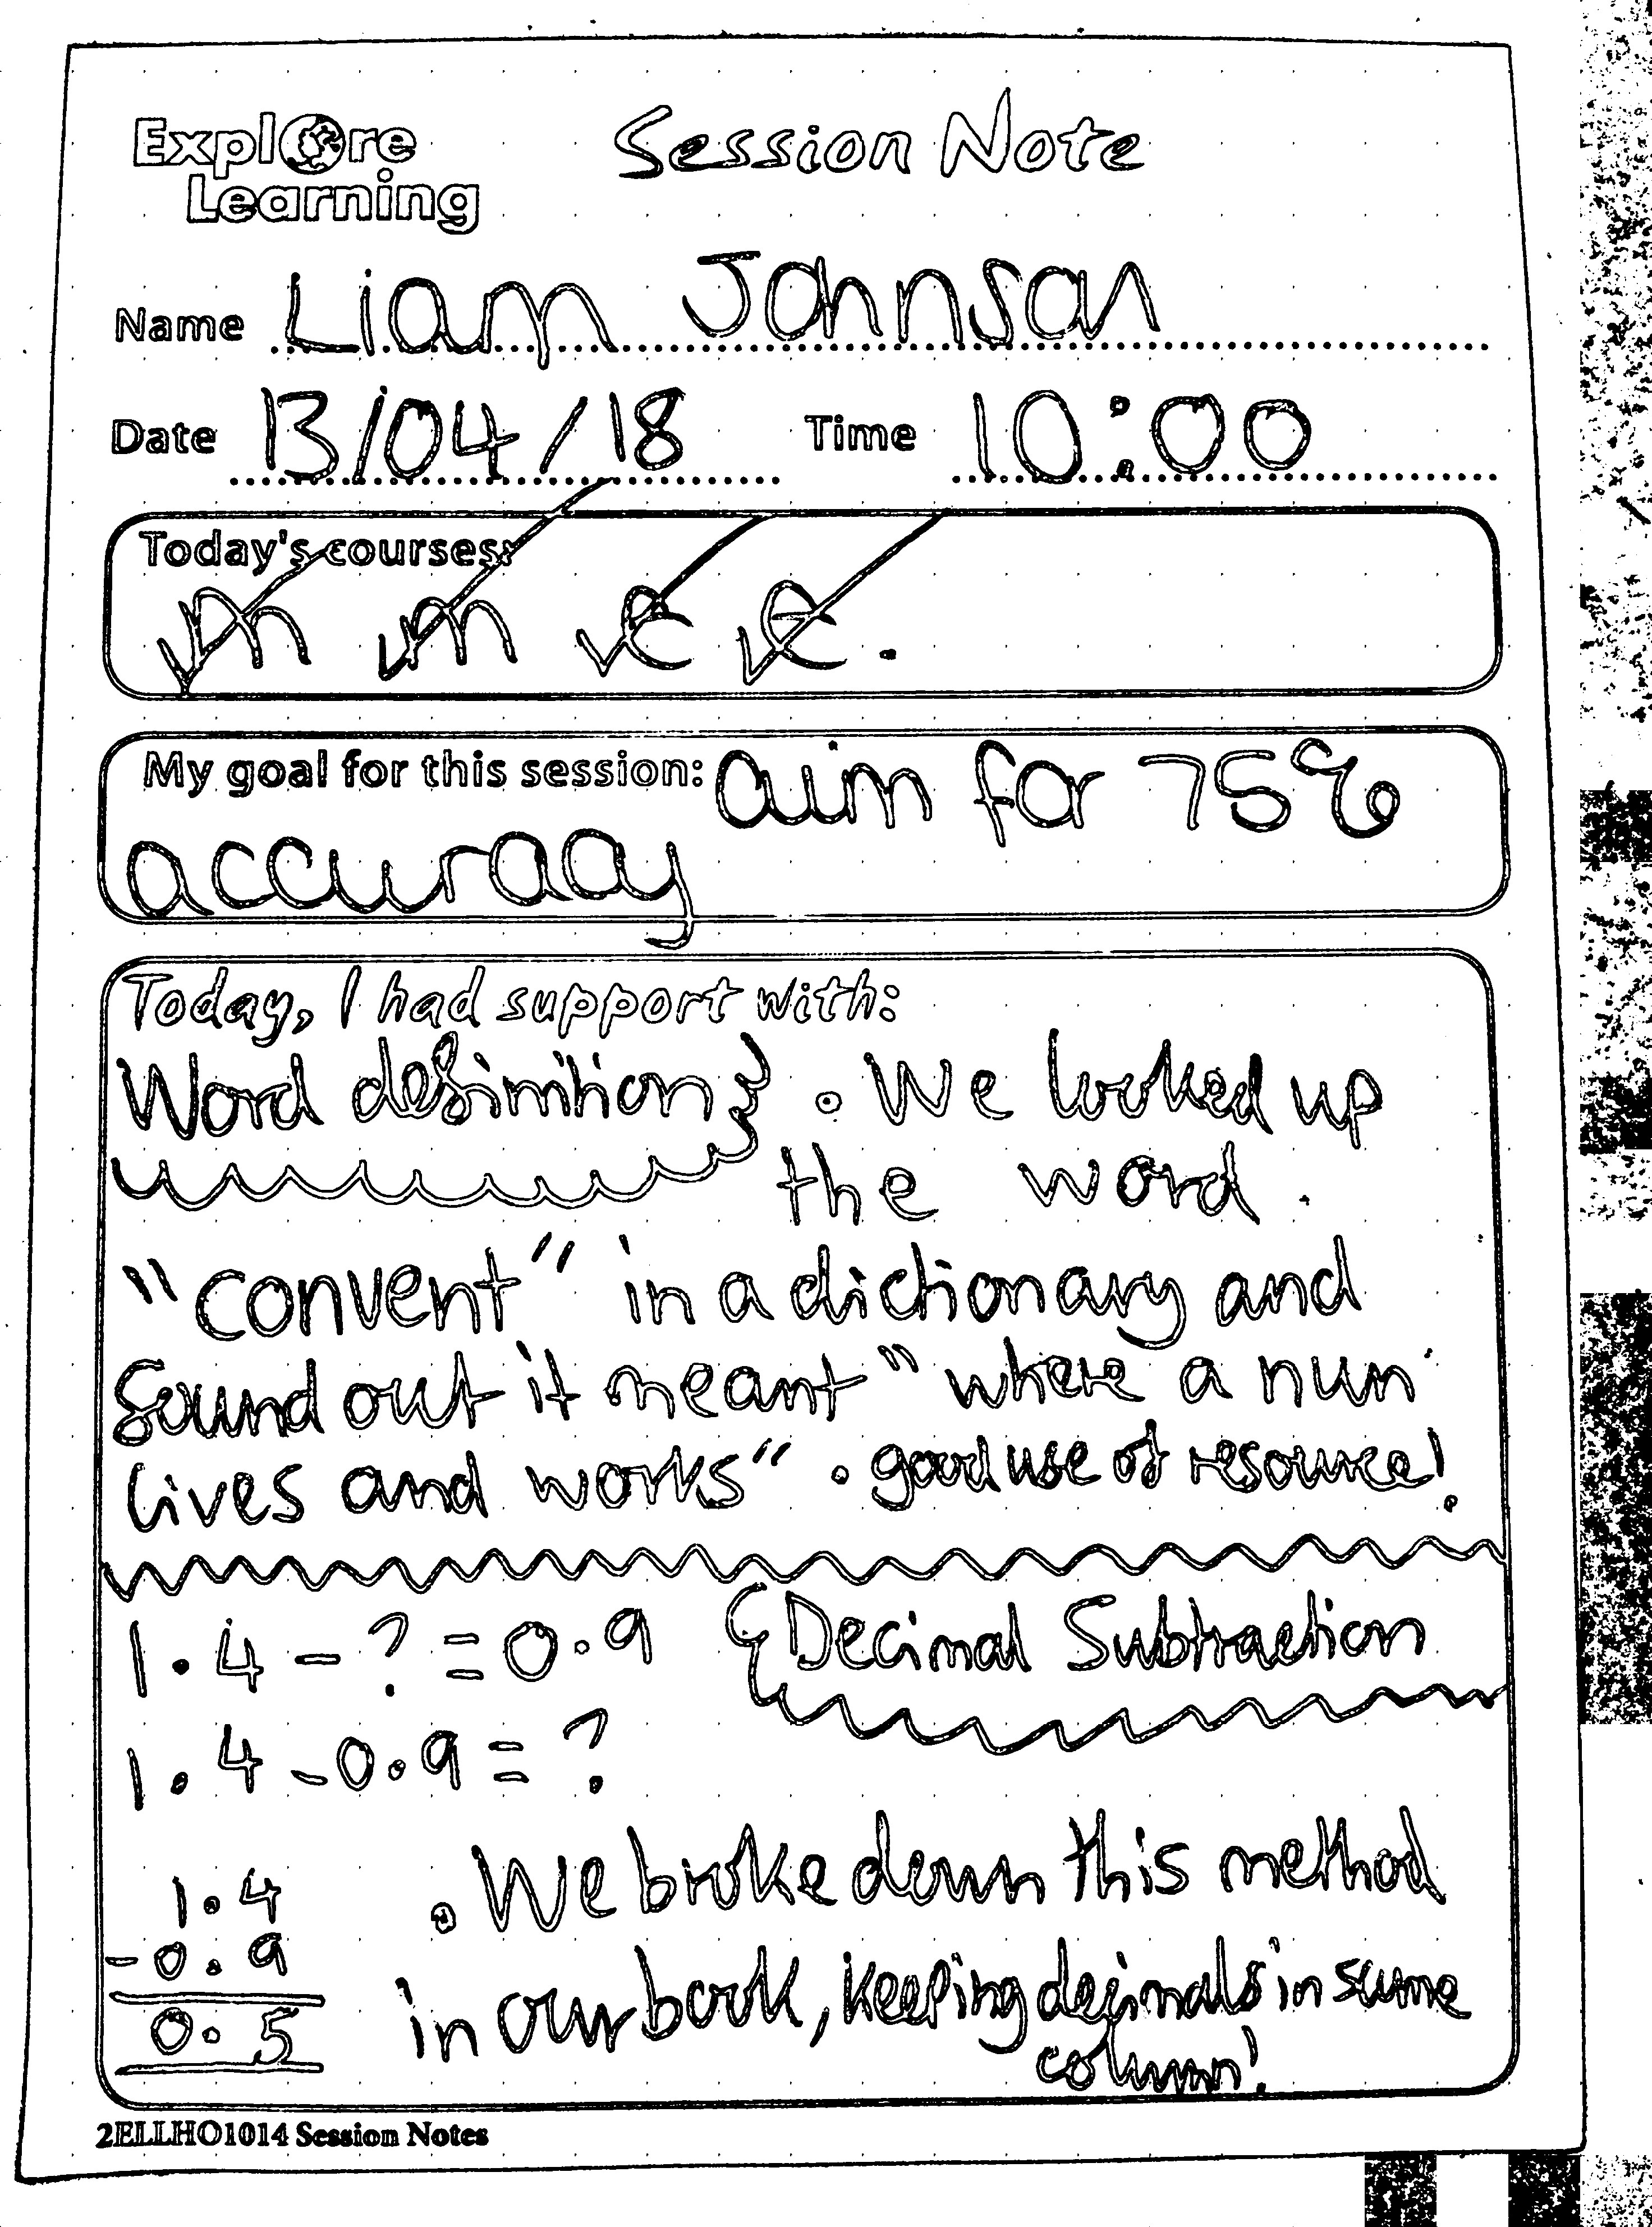 Explore
Learning
Session Note
Name Liam Johnson
Date 13/04/18 Time 10:00
Today's courses:
m m e e .
My goal for this session: aim for 75%
accuracy
Today, I had support with:
Word definition • We looked up
the word
"convent" in a dictionary and
Sound out it meant "where a nun
lives and works" • good use of resource!
1.4 - ? = 0.9 Decimal Subtraction
1.4 - 0.9 = ?
1.4
-0.9
0.5
• We broke down this method
in our book, keeping decimals in same
column!
2ELLHO1014 Session Notes